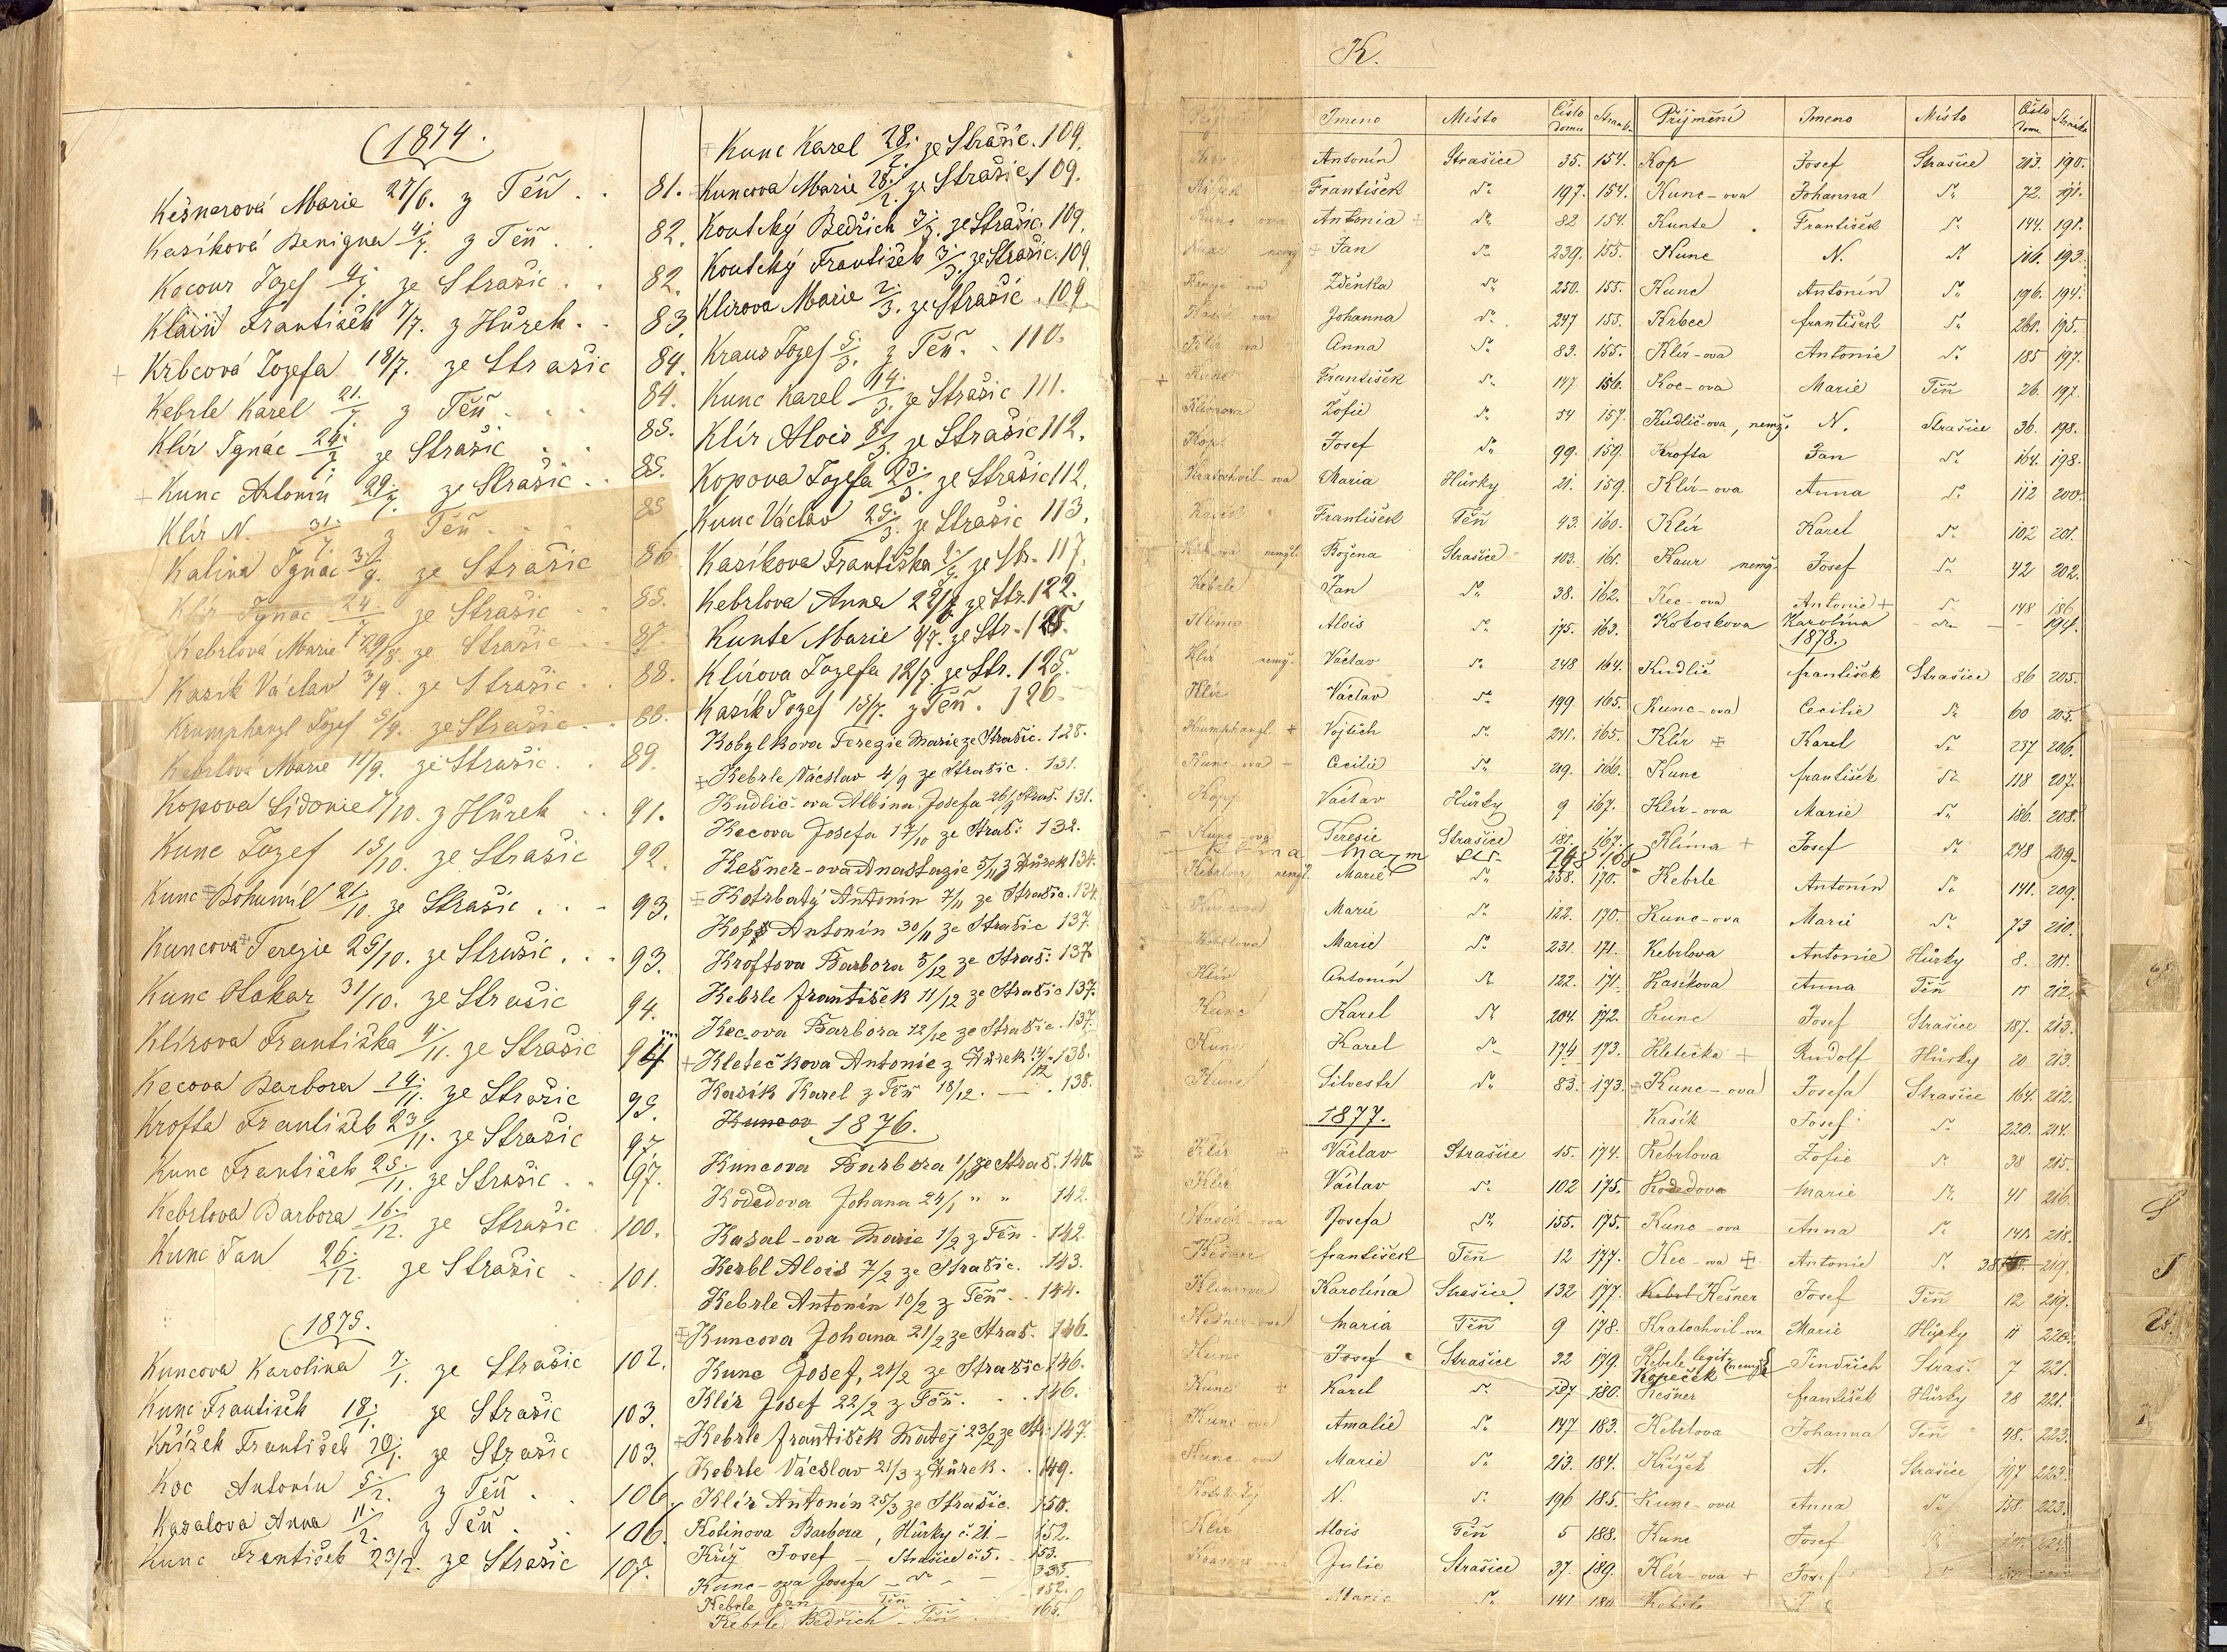 1874.
Kešnerová Marie 27/6. z Těň . . 81.
Kasíková Benigna 4/7. z Těň . . 82.
Kocour Jozef 4/7. ze Strašic . . 82.
Klain František 7/7. z Hůrek . . 83.
+ Krbcová Jozefa 18/7. ze Strašic 84.
Kebrle Karel 21./7. z Těň . . . 84.
Klír Ignác 24./7. ze Strašic . . 85.
+ Kunc Antonín 29./7. ze Strašic . . 85.
Klír N. 31./7. z Těň . . . 85
Kalina Ignác 3./9. ze Strašic 86
Klír Ignac 24./7. ze Strašic . . 85.
Kebrlová Marie 29/8. ze Strašic . . 87.
Kasík Václav 3/9. ze Strašic . . 88.
Krumphanzl Jozef 5/9. ze Strašic . . 88.
Kebrlová Marie 11/9. ze Strašic . . 89.
Kopova Sidonie /10. z Hůrek . . 91.
Kunc Jozef 15/10. ze Strašic 92.
Kunc Bohumil 21./10. ze Strašic . . 93.
Kuncova Terezie 25/10. ze Strašic . . 93.
Kunc Otakar 31/10. ze Strašic 94.
Klírova Františka 4./11. ze Strašic 94
Kecova Barbora 14./11. ze Strašic 95.
Krofta František 23/11. ze Strašic 97.
Kunc František 25./11. ze Strašic . . 97.
Kebrlova Barbora 16./12. ze Strašic 100.
Kunc Jan 26./12. ze Strašic . 101.
1875.
Kuncova Karolina 7./1. ze Strašic 102.
Kunc František 18/1. ze Strašic 103.
Křížek František 20/1. ze Strašic 103.
Koc Antonín 5./2. z Těň . . 106.
Kasalova Anna 11./2. z Těň . . 106.
Kunc František 23/2. ze Strašic 107.
Kunc Karel 28./2. ze Strašic. 109.
Kuncova Marie 28./2. ze Strašic 109.
Koutcký Bedřich 3/3. ze Strašic. 109.
Koutcký František 3/3. ze Strašic. 109.
Klirova Marie 2./3. ze Strašic . 109.
Kraus Jozef 5./3. z Těň . . 110.
Kunc Karel 14./3. ze Strašic 111.
Klír Alois 8/3. ze Strašic 112.
Kopova Jozefa 23./3. ze Strašic 112.
Kunc Václav 25./3. ze Strašic 113.
Kasíkova Františka ze Str. 117.
Kebrlova Anna ze Str. 122.
Kunte Marie 4/7. ze Str. 125.
Klírova Jozefa 12/7. ze Str. 125.
Kasík Jozef 15/7. z Těň . 126.
Kobylkova Terezie Marie ze Strašic. 128.
Kebrle Václav 4/9 ze Strašic . 131.
Kudlič-ova Albina Josefa 26/9 Straš. 131.
Kecova Josefa 17/10 ze Straš: 132.
Kešner-ova Anastazie 5/11 z Hůrek 134.
Kotrbatý Antonín 7/11 ze Strašic. 134
Kop Antonín 30/11 ze Strašic 137.
Kroftova Barbora 5/12 ze Straš: 137
Kebrle František 11/12 ze Strašic 137.
Kec-ova Barbora 12/12 ze Strašic. 137.
+ Kletečkova Antonie z Hůrek 138.
Kasík Karel z Těň 18/12. — . 138.
Kuncov 1876.
Kuncova Barbora 1/1 ze Straš. 140
Kodedova Johana 24/1 " " 142.
Kasal-ova Marie 1/2 z Těn . 142.
Kerbl Alois 7/2 ze Strašic. . 143.
Kebrle Antonín 10/2 z Těň . . 144.
Kuncova Johana 21/2 ze Straš. 146.
Kunc Josef, 21/2 ze Strašic 146.
Klír Josef 22/2 z Těň . . . 146.
Kebrle František Matěj 23/2 ze Str. 147.
Kebrle Václav 21/3 z Hůrek . . 149.
Klír Antonín 25/3 ze Strašic. 150.
Kotinova Barbora, Hůrky č. 21. – 152.
Kříž Josef – Strašice č. 5. . 153.
Kunc-ova Josefa – dto –
Kebrle Jan Těň . . 152.
Kebrle Bedřich – Těň . . 165
K.
Jmeno Místo Číslo domu Stránka Příjmení Jmeno Místo Číslo domu Stránka
Antonín Strašice 35. 154. Kop Josef Strašice 213. 190.
František dto 197. 154. Kunc-ova Johanna dto 72. 191.
Kunc-ova Antonia + dto 82 154. Kunte František dto 144. 191.
Kunc nemž + Jan dto 239. 155. Kunc N. dto 116. 193.
Zděnka dto 250. 155. Kunc Antonín dto 196. 194.
Johanna dto 247 155. Krbec František dto 261. 195.
Anna dto 83. 155. Klír-ova Antonie dto 185 197.
+ Kunc František dto 147 156. Koc-ova Marie Těň 26. 197.
Klírova Žofie dto 54 157. Kudlič-ova, nemž. N. Strašice 36. 198.
Kop Josef dto 99. 159. Krofta Jan dto 164. 198.
Kratochvil-ova Maria Hůrky 21. 159. Klír-ova Anna dto 112 200.
Kasík František Těň 43. 160. Klír Karel dto 102 201.
nemžl. Božena Strašice 103. 161. Kaur nemž. Josef dto 42 202.
Kebrle Jan dto 38. 162. Kec-ova Antonie + dto 148 186
Klíma Alois dto 175. 163. Kokoskova Karolina dto – 194.
1878.
Klír nemž. Václav dto 248 164. Kudlič František Strašice 86 205.
Klír Václav dto 199 165. Kunc-ova Cecilie dto 60 205.
Krumphanzl + Vojtěch dto 241. 165. Klír + Karel dto 237 206.
Kunc-ova Cecilie dto 219. 166. Kunc František dto 118 207.
Kopp Václav Hůrky 9 167. Klír-ova Marie dto 186. 208.
Kunc-ova Teresie Strašice 181. 167. Klíma + Josef dto 248 209.
Klíma Maxm 168
Kebrlova nemžl. Marie dto 238. 170. Kebrle Antonín dto 141. 209.
Kuncova Marie dto 122. 170. Kunc-ova Marie dto 73 210.
Kebrlova Marie dto 231. 171. Kebrlova Antonie Hůrky 8. 211.
Klír Antonín dto 122. 171. Kasíkova Anna Těň 11 212.
Kunc Karel dto 204. 172. Kunc Josef Strašice 187. 213.
Kunc Karel dto 174 173. Kletečka + Rudolf Hůrky 20 213.
Kunc Silvestr dto 83. 173. Kunc-ova Josefa Strašice 164. 212.
1877. Kasík Josef dto 220. 214.
Klír + Václav Strašice 15. 174. Kebrlova Žofie dto 38 215.
Klír Václav dto 102 175. Kodedova Marie dto 41 216.
Josefa dto 155. 175. Kunc-ova Anna dto 141. 218.
Kešner František Těň 12 177. Kec-ova + Antonie dto 38 219.
Klímova Karolína Strašice 132 177. Kebrl Kešner Josef Těň 12 219.
Kešner-ova Maria Těň 9 178. Kratochvil-ova Marie Hůrky 11 220.
Kunc Josef Strašice 32 179. Kebrle legit. nemžl. Jindřich Straš. 7 221.
Kopeček
Kunc + Karel dto 187 180. Kešner František Hůrky 28 221.
Kunc-ova Amalie dto 147 183. Kebrlova Johanna Těň 48. 223.
Kunc-ova Marie dto 213. 184. Křížek N. Strašice 197 223.
Kotrbatý N. dto 196 185. Kunc-ova Anna dto 158 223.
Klír Alois Těň 5 188. Kunc Josef
Julie Strašice 37. 189. Klír-ova + Josef
Marie dto 141 180 Kebrle